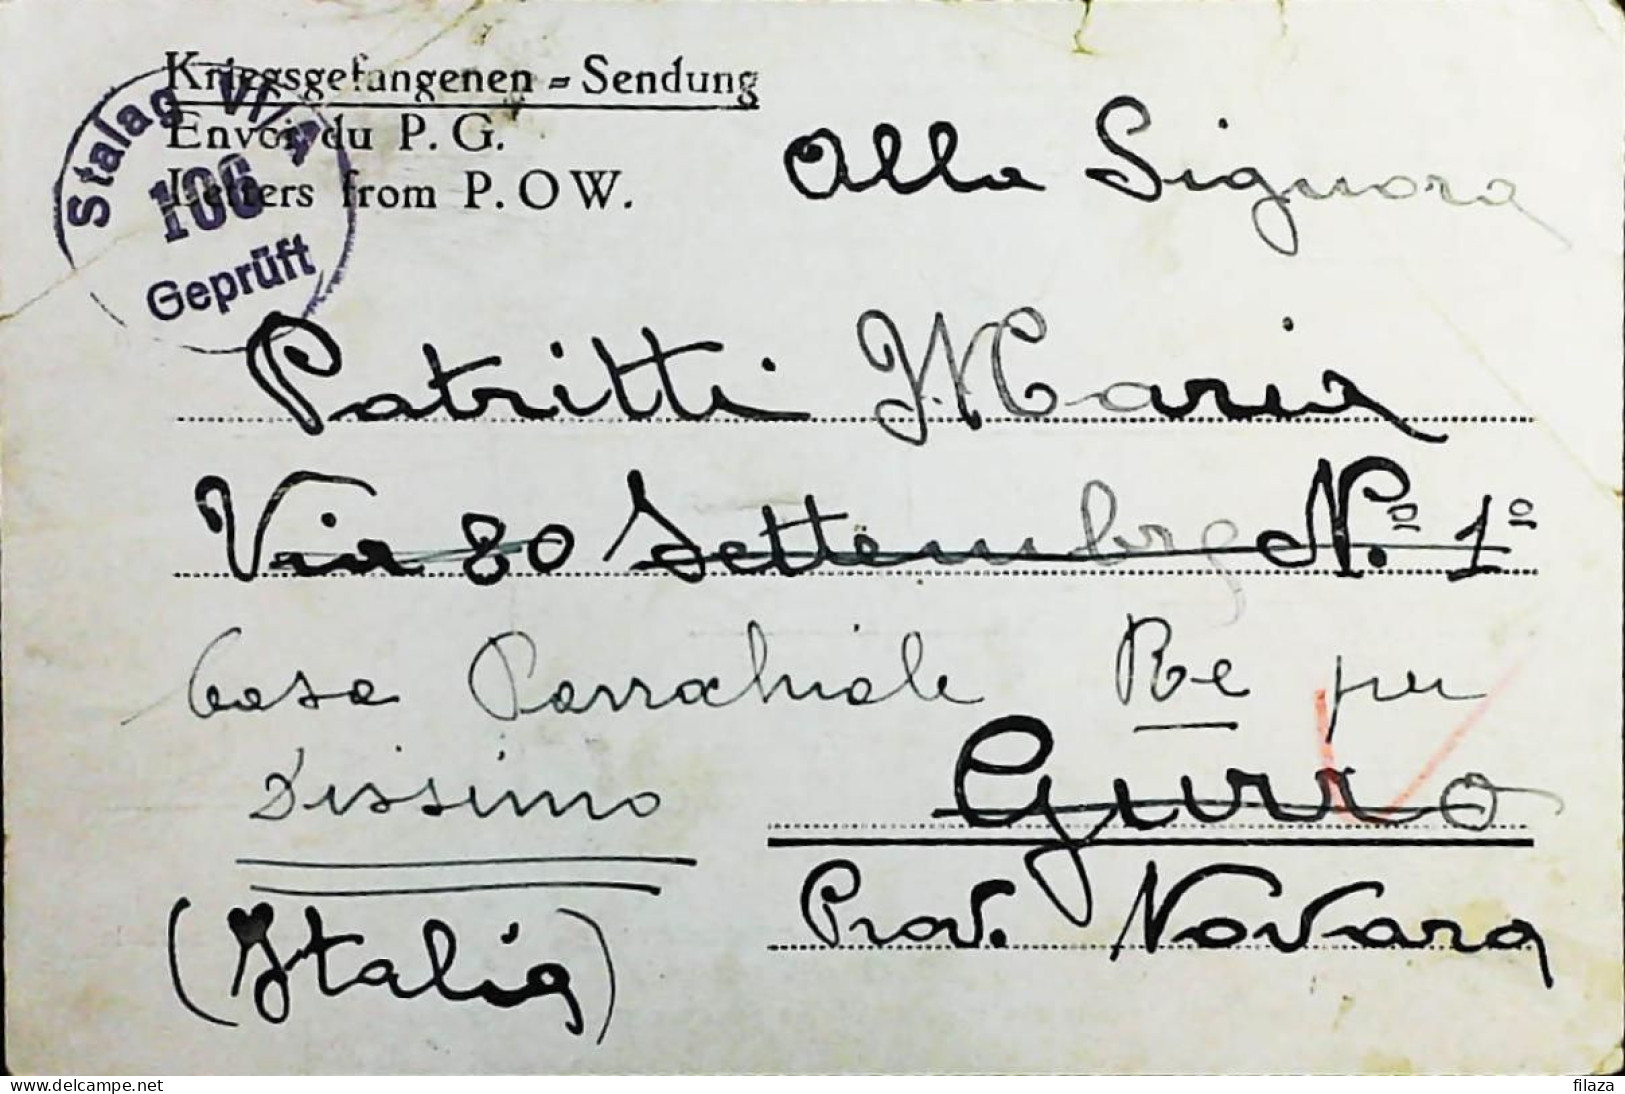 Kriegsgefangenen = Sendung
Envoi du P. G.
Letters from P. OW.
Stalag VI/A
106
Geprüft
Alla Signora
Patritti Maria
Via 20 Settembre N.o 1º
Casa Parrochiale Re per
Dissimo
Gurro
Prov. Novara
(Italia)
filaza